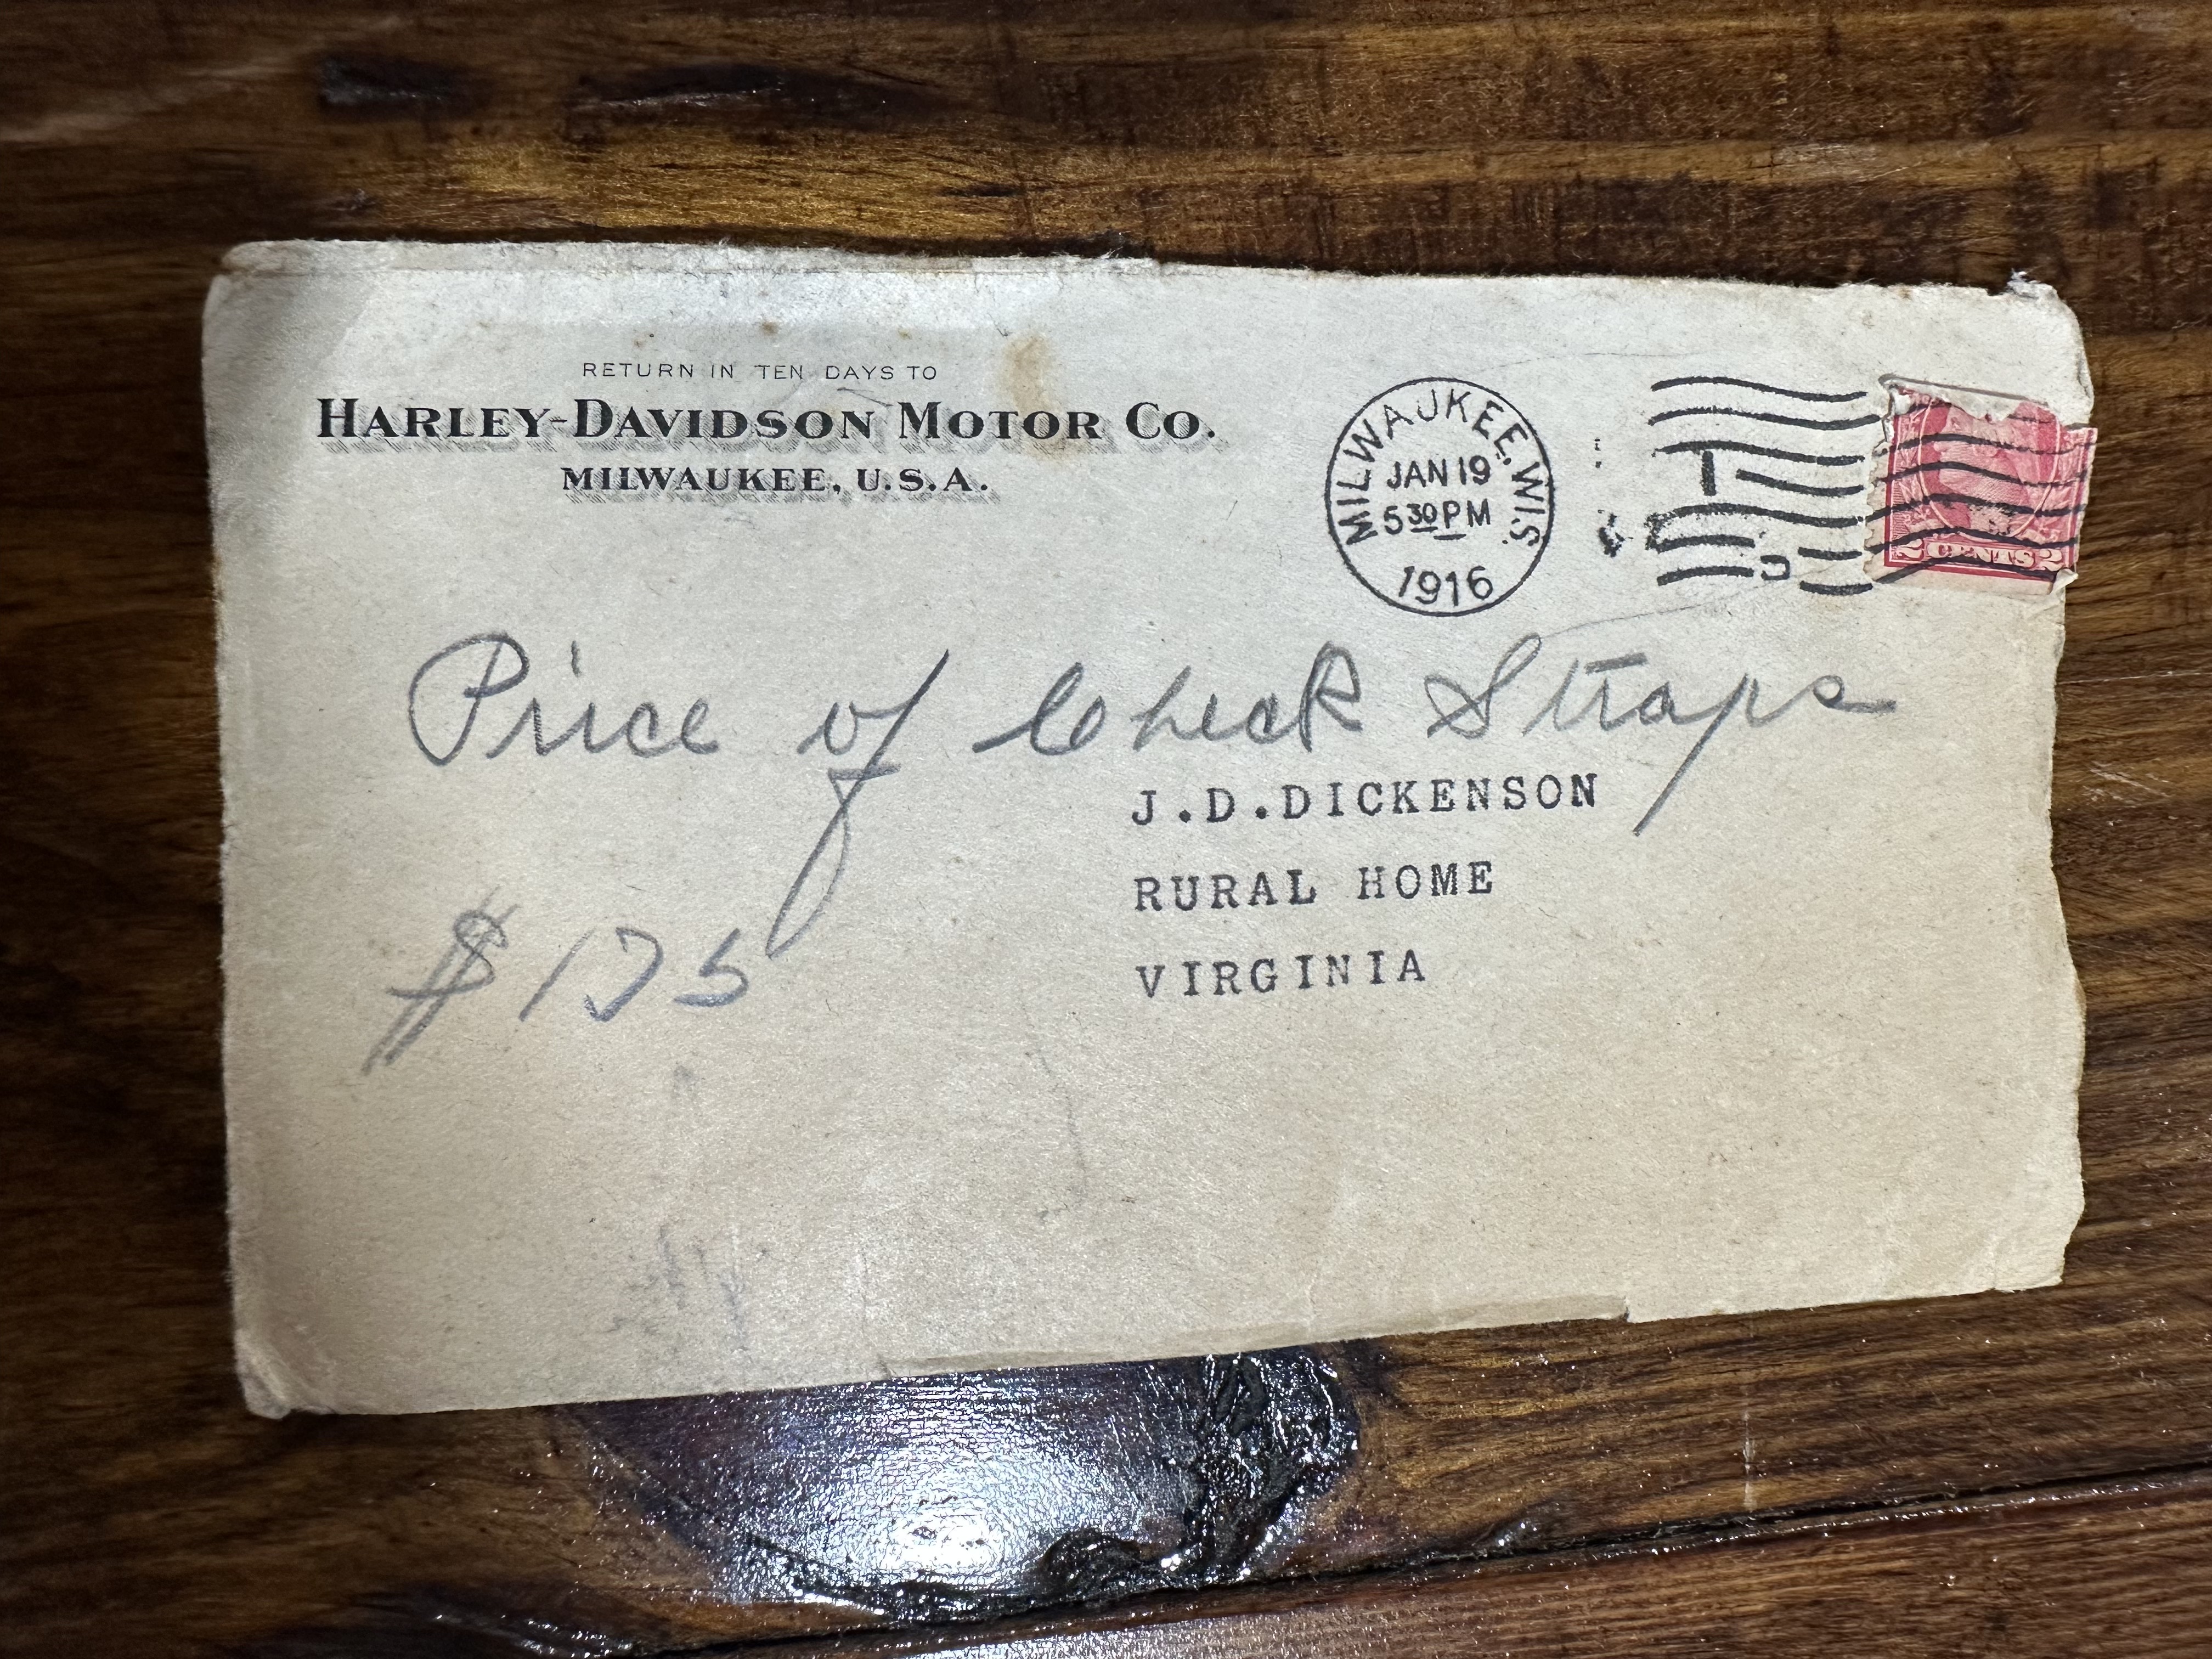 RETURN IN TEN DAYS TO
HARLEY-DAVIDSON MOTOR CO.
MILWAUKEE, U.S.A.
MILWAUKEE, WIS.
JAN 19
5 30 PM
1916
2 CENTS 2
Price of Check Straps
J.D.DICKENSON
RURAL HOME
VIRGINIA
$175